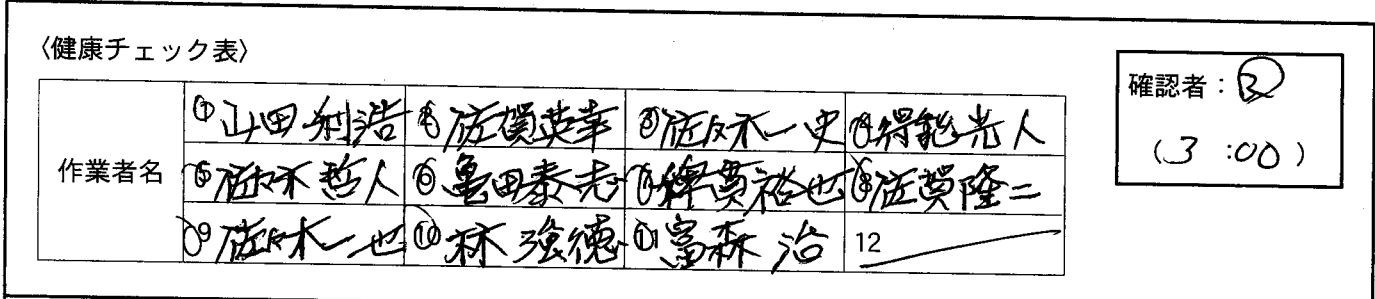 〈健康チェック表〉
確認者：
(3 :00)
作業者名
① 山田利浩 ② 佐賀英幸 ③ 佐々木一史 ④ 得能光人
⑤ 佐々木哲人 ⑥ 亀田泰志 ⑦ 綿貫裕也 ⑧ 佐賀隆二
⑨ 佐々木一也 ⑩ 林 強徳 ⑪ 富森 治 12